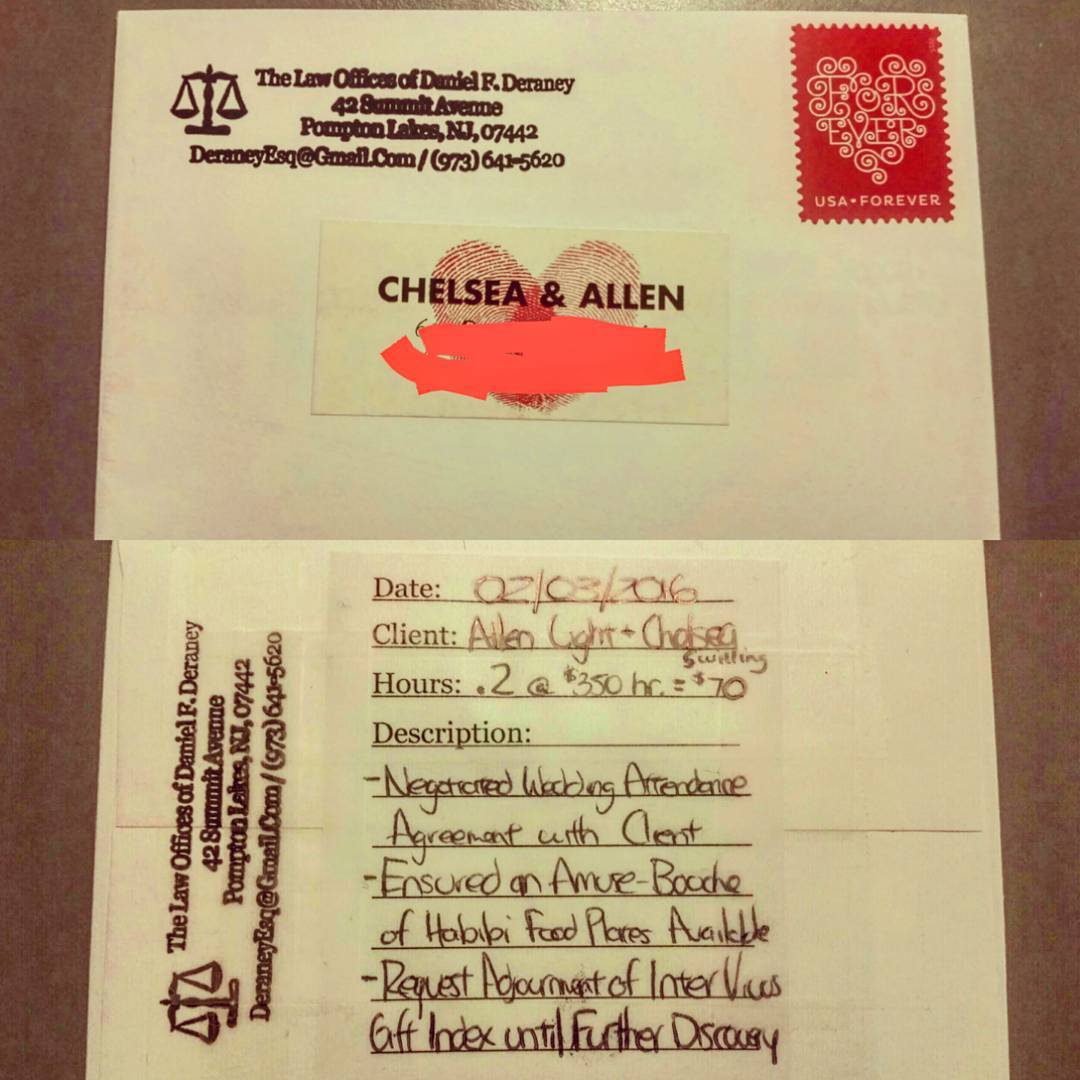 The Law Offices of Daniel F. Deraney
42 Summit Avenue
Pompton Lakes, NJ, 07442
DeraneyEsq@Gmail.Com / (973) 641-5620
FOR
EVER
USA•FOREVER
CHELSEA & ALLEN
The Law Offices of Daniel F. Deraney
42 Summit Avenue
Pompton Lakes, NJ, 07442
DeraneyEsq@Gmail.Com / (973) 641-5620
Date: 02/03/2016
Client: Allen Light + Chelsea
Swilling
Hours: .2 @ $350 hr. = $70
Description:
-Negotiated Wedding Attendance
Agreement with Client
-Ensured an Amuse-Bouche
of Habibi Food Plates Available
-Request Adjournment of Inter Vivos
Gift Index until Further Discovery